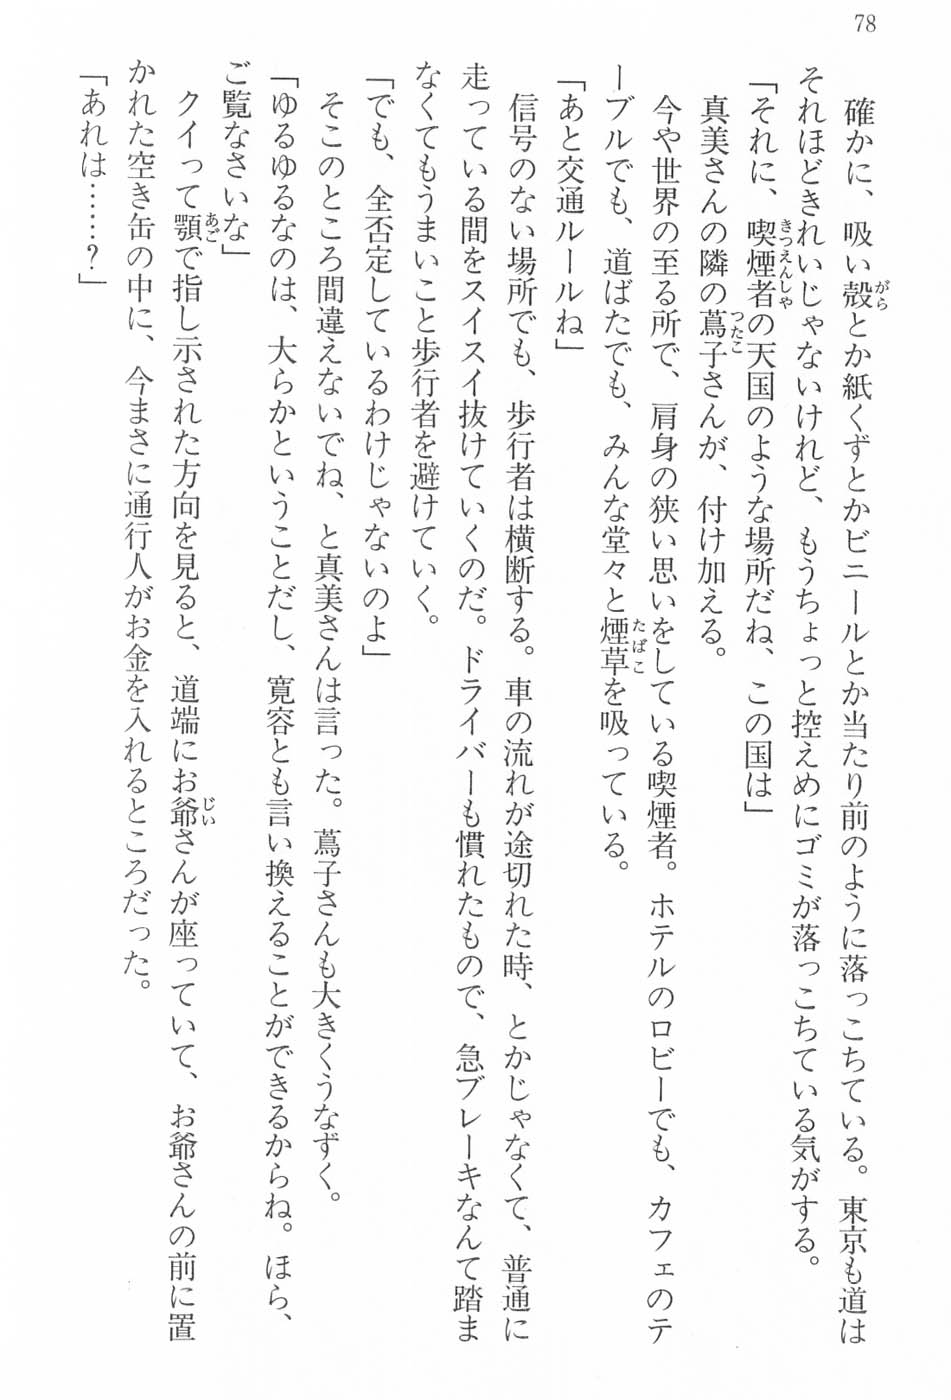 78
　確かに、吸い殻とか紙くずとかビニールとか当たり前のように落っこちている。東京も道は
それほどきれいじゃないけれど、もうちょっと控えめにゴミが落っこちている気がする。
「それに、喫煙者の天国のような場所だね、この国は」
　真美さんの隣の蔦子さんが、付け加える。
　今や世界の至る所で、肩身の狭い思いをしている喫煙者。ホテルのロビーでも、カフェのテ
ーブルでも、道ばたでも、みんな堂々と煙草を吸っている。
「あと交通ルールね」
　信号のない場所でも、歩行者は横断する。車の流れが途切れた時、とかじゃなくて、普通に
走っている間をスイスイ抜けていくのだ。ドライバーも慣れたもので、急ブレーキなんて踏ま
なくてもうまいこと歩行者を避けていく。
「でも、全否定しているわけじゃないのよ」
　そこのところ間違えないでね、と真美さんは言った。蔦子さんも大きくうなずく。
「ゆるゆるなのは、大らかということだし、寛容とも言い換えることができるからね。ほら、
ご覧なさいな」
　クイって顎で指し示された方向を見ると、道端にお爺さんが座っていて、お爺さんの前に置
かれた空き缶の中に、今まさに通行人がお金を入れるところだった。
「あれは……？」
がら
きつえんしゃ
つたこ
たばこ
あご
じい